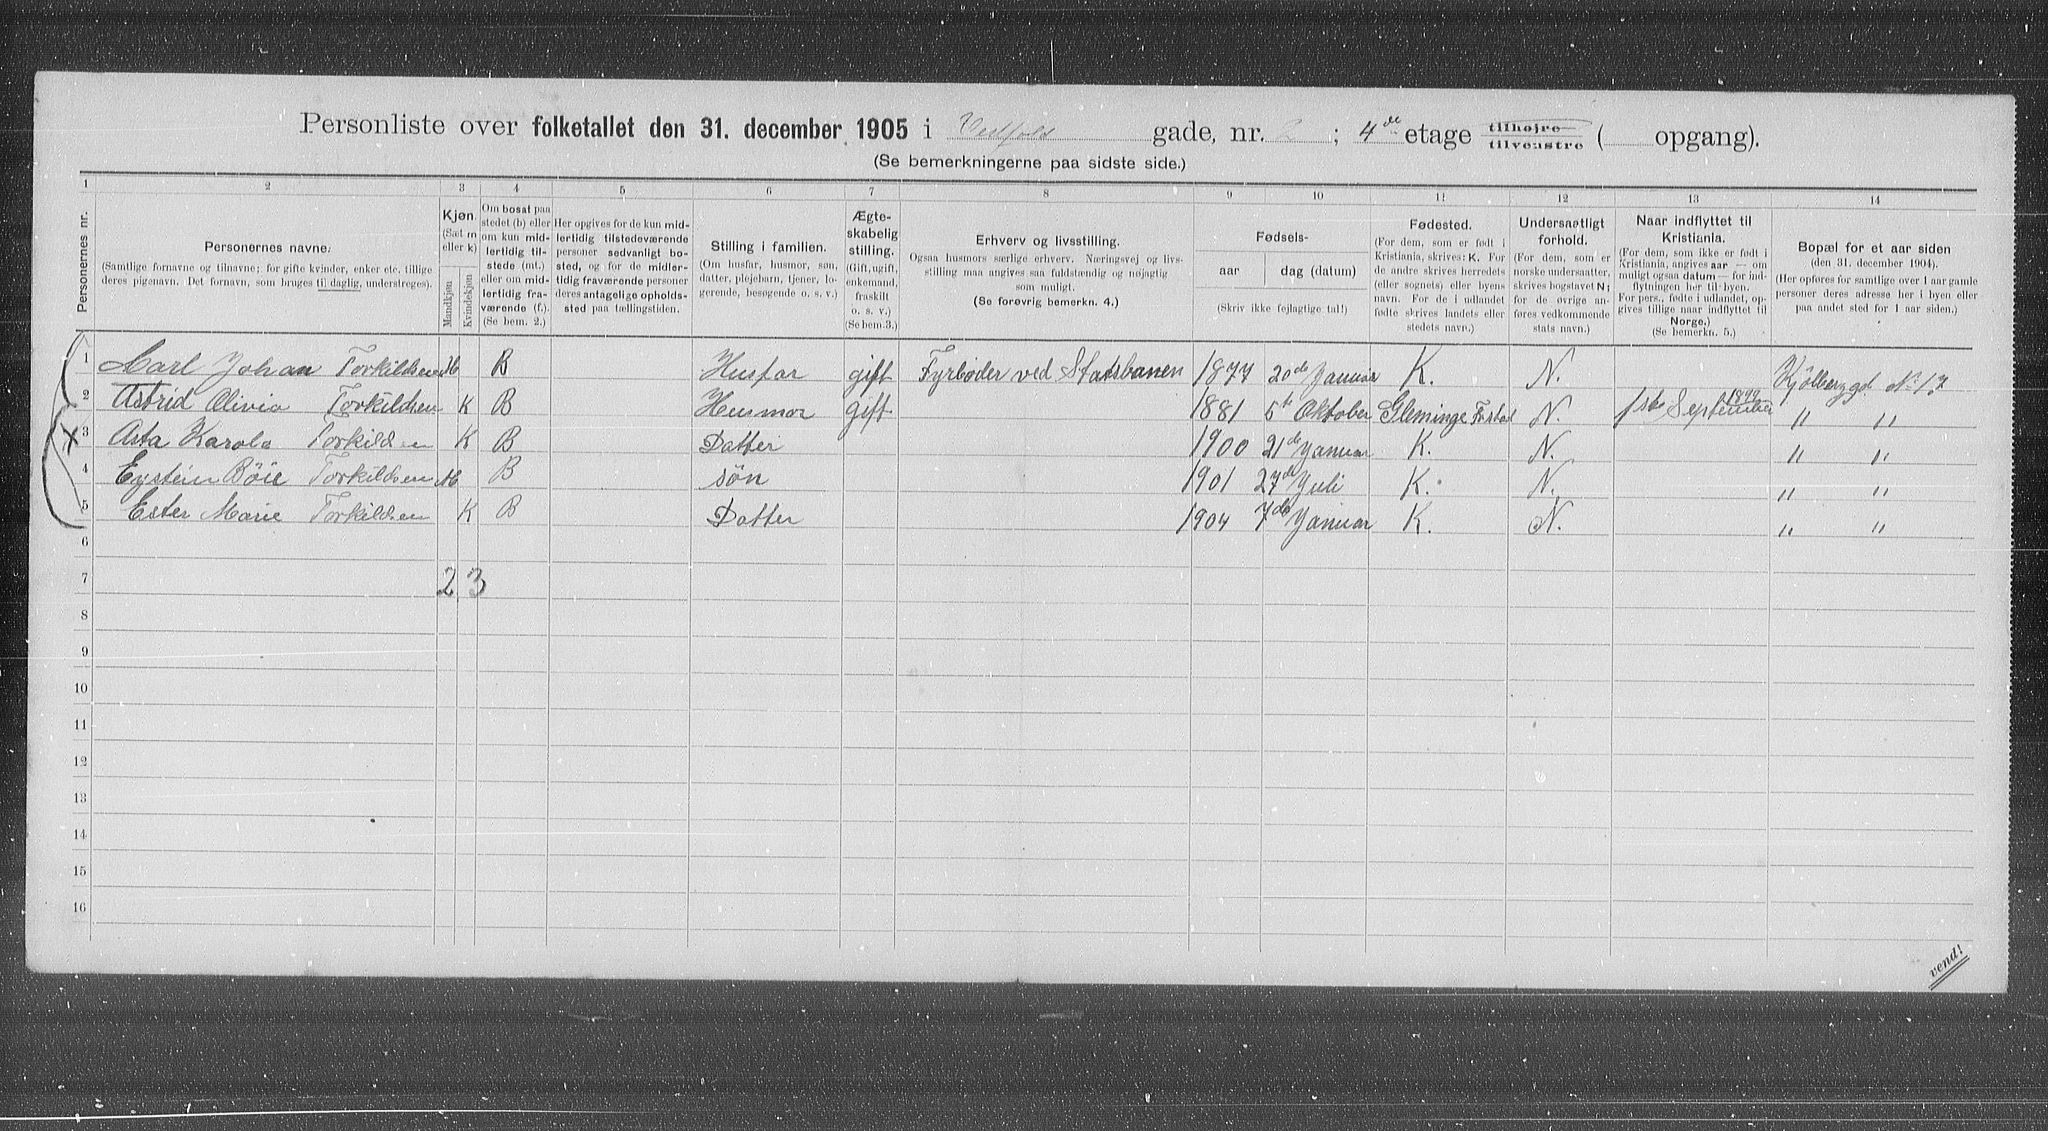 Personliste over folketallet den 31. december 1905 i Vestfold gade, nr. 2 ; 4de etage tilhøjre tilvenstre ( opgang).
(Se bemerkningerne paa sidste side.)
1 2 3 4 5 6 7 8 9 10 11 12 13 14
Personernes nr.
Personernes navne.
(Samtlige fornavne og tilnavne; for gifte kvinder, enker etc. tillige
deres pigenavn. Det fornavn, som bruges til daglig, understreges).
Kjøn.
(Sæt m
eller k)
Mandkjøn
Kvindekjøn
Om bosat paa
stedet (b) eller
om kun mid-
lertidig til-
stede (mt.)
eller om mid-
lertidig fra-
værende (f.).
(Se bem. 2.)
Her opgives for de kun mid-
lertidig tilstedeværende
personer sedvanligt bo-
sted, og for de midler-
tidig fraværende personer
deres antagelige opholds-
sted paa tællingstiden.
Stilling i familien.
(Om husfar, husmor, søn,
datter, plejebarn, tjener, lo-
gerende, besøgende o. s. v.)
Ægte-
skabelig
stilling.
(Gift, ugift,
enkemand,
fraskilt
o. s. v.)
(Se bem. 3.)
Erhverv og livsstilling.
Ogsaa husmors særlige erhverv. Næringsvej og livs-
stilling maa angives saa fuldstændig og nøjagtig
som muligt.
(Se forøvrig bemerkn. 4.)
Fødsels-
aar
dag (datum)
(Skriv ikke fejlagtige tal!)
Fødested.
(For dem, som er født i
Kristiania, skrives: K. For
de andre skrives herredets
(eller sognets) eller byens
navn. For de i udlandet
fødte skrives landets eller
stedets navn.)
Undersaatligt
forhold.
(For dem, som er
norske undersaatter,
skrives bogstavet N;
for de øvrige an-
føres vedkommende
stats navn.)
Naar indflyttet til
Kristiania.
(For dem, som ikke er født i
Kristiania, angives aar — om
muligt ogsaa datum — for ind-
flytningen her til byen.
For pers., fødte i udlandet, op-
gives tillige naar indflyttet til
Norge.)
(Se bemerkn. 5.)
Bopæl for et aar siden
(den 31. december 1904).
(Her opføres for samtlige over 1 aar gamle
personer deres adresse her i byen eller
paa andet sted for 1 aar siden.)
1 Carl Johan Torkildsen M B Husfar gift Fyrbøder ved Statsbanen 1877 20de Januar K. N. Kjølberggd No 17
2 Astrid Olivia Torkildsen K B Husmor gift 1881 5t Oktober Gleminge N. 1ste September 1899 " "
3 Asta Karola Torkildsen K B Datter 1900 21de Januar K. N. " "
4 Eystein Bøie Torkildsen M B søn 1901 27de Juli K. N. " "
5 Ester Marie Torkildsen K B Datter 1904 7de Januar K. N. " "
6
7 2 3
8
9
10
11
12
13
14
15
16
vend!